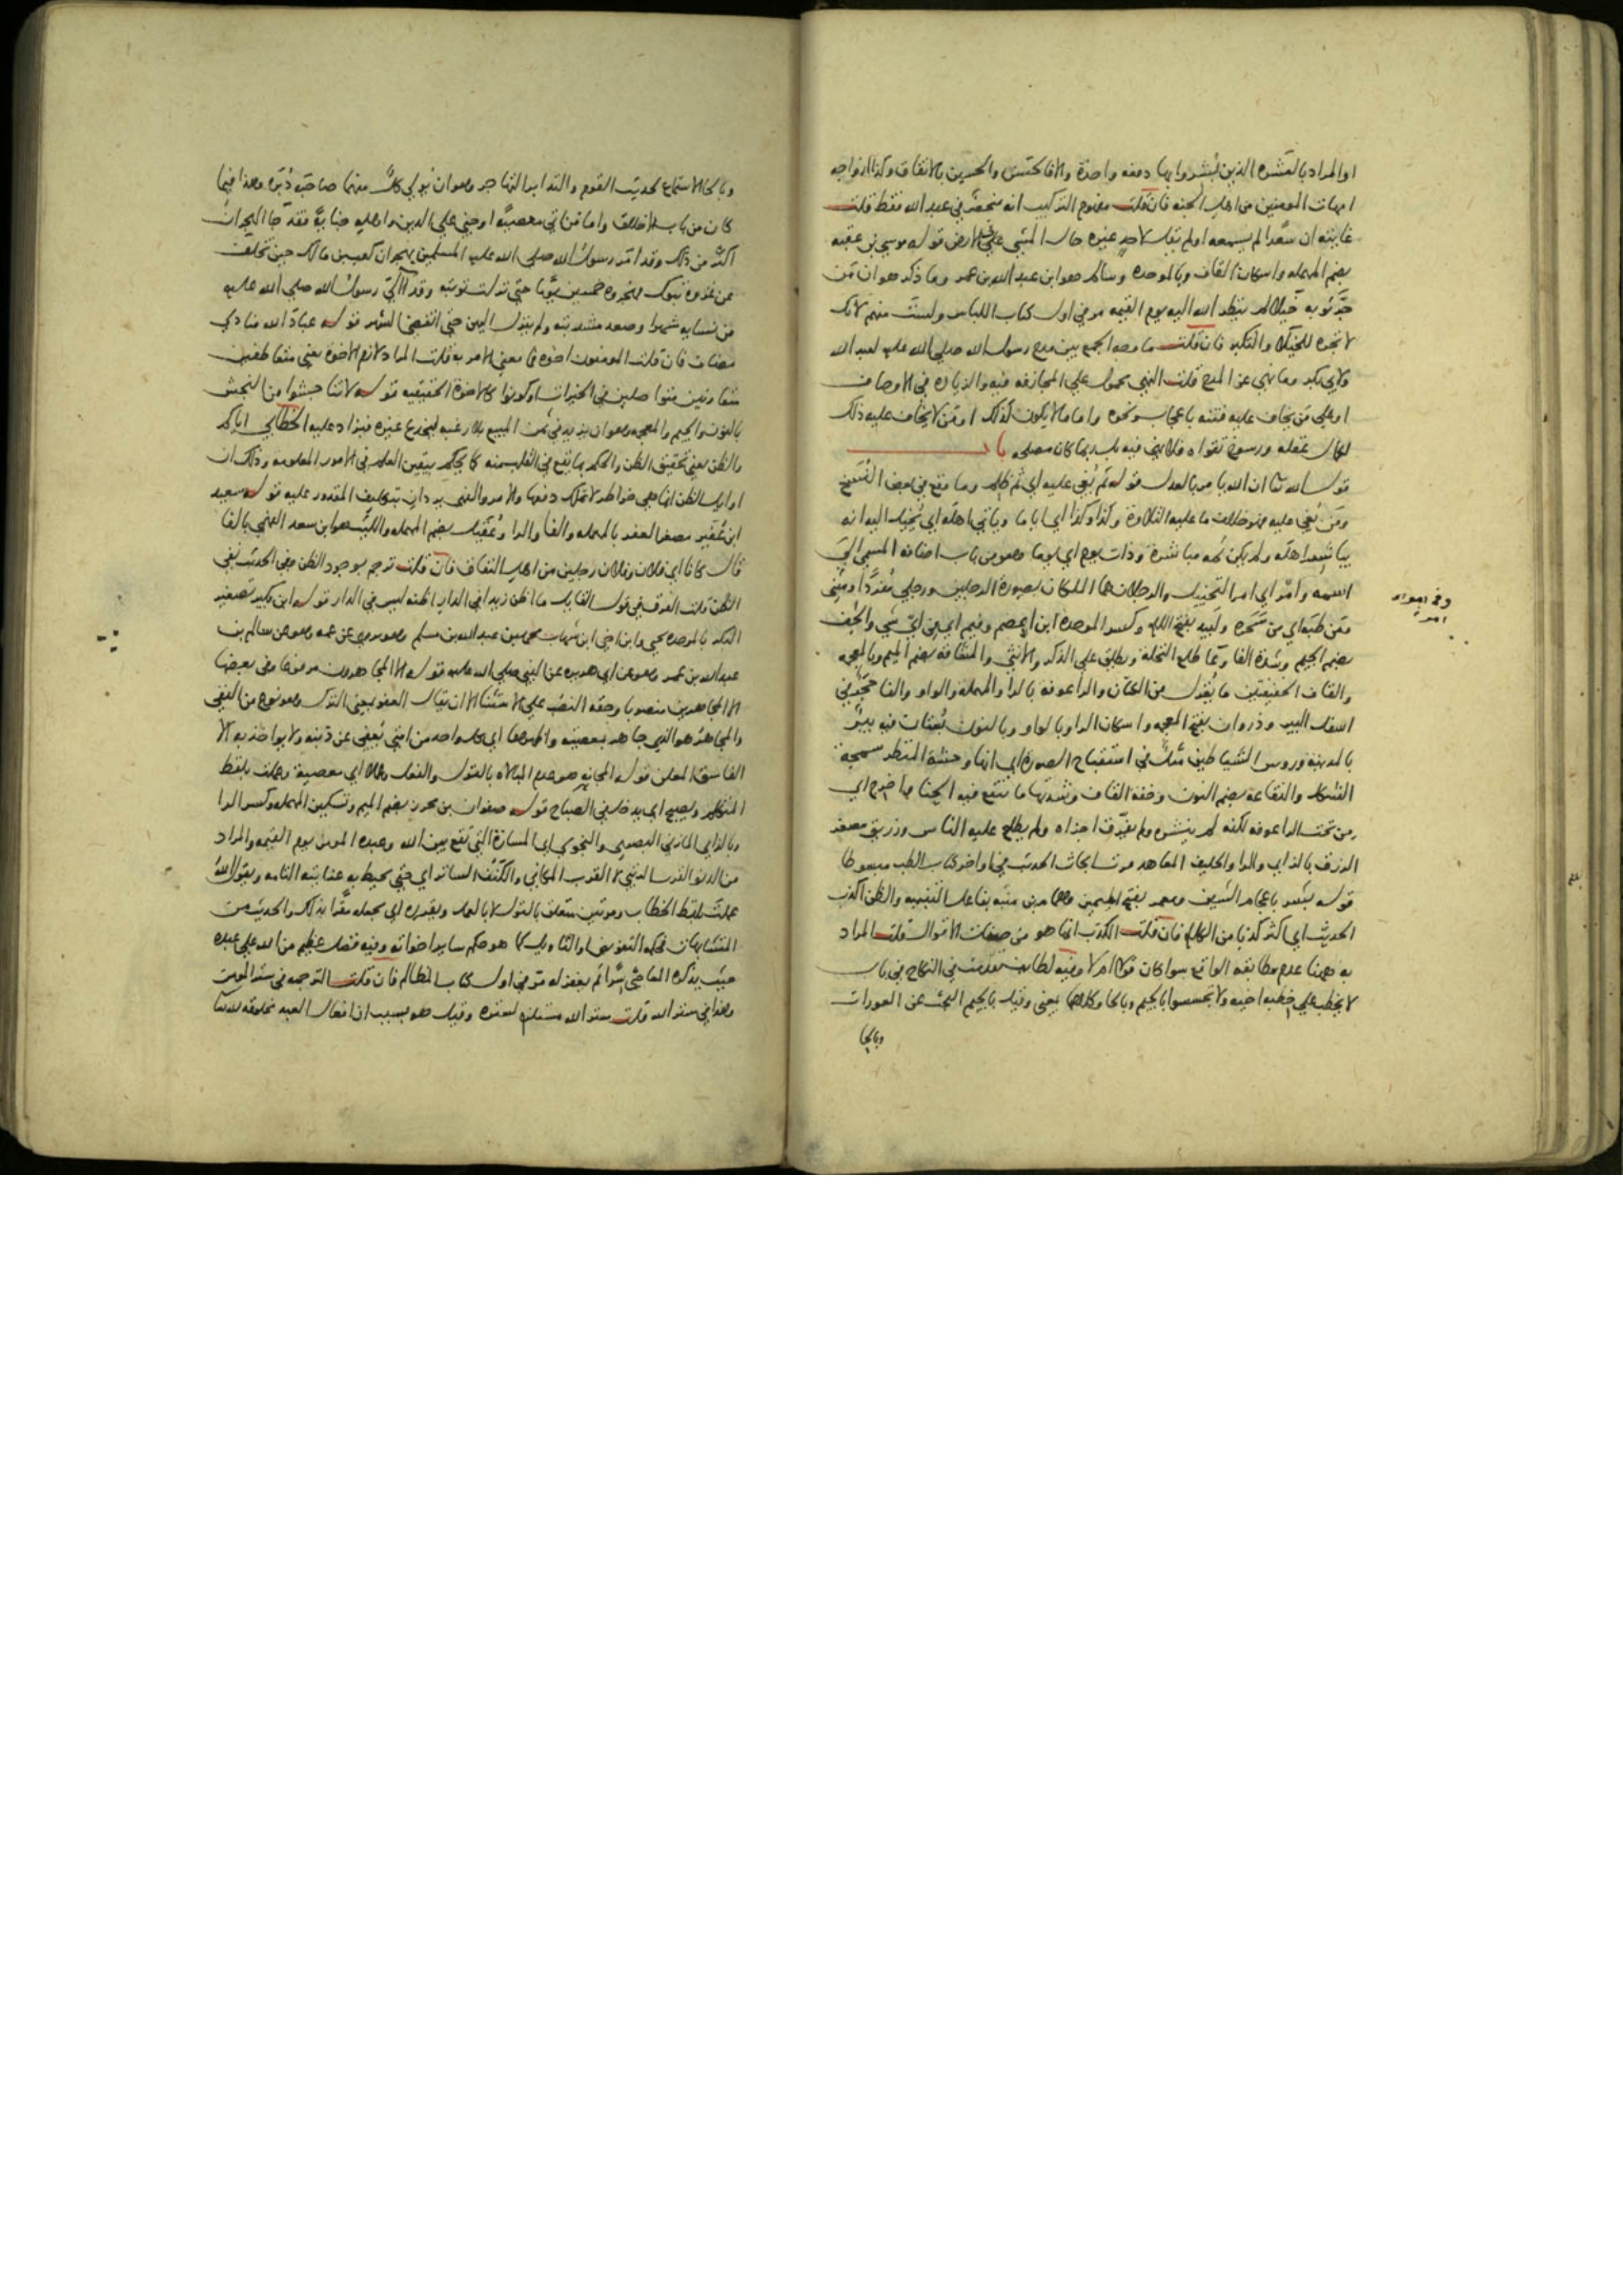 او المراد بالعشره الذين بُشروا بها دفعه واحدة والا فالحسن والحسين بالاتفاق وكذا ازواجه
امهات المومنين من اهل الجنه فان قلت مفهوم التركيب انه منحصر في عبد الله فقط قلت
غايته ان سعدا لم يسمعه او لم يقل لاحد غيره حال المشي على الارض قوله موسى بن عقبه
بضم المهمله واسكان القاف وبالموحده وسالم هو ابن عبد الله بن عمر وما ذكر هو ان من
جر ثوبه خيلا لم ينظر الله اليه يوم القيمه مر في اول كتاب اللباس ولست منهم لانك
لا تجره للخيلا والتكبر فان قلت ما وجه الجمع بين مدح رسول الله صلى الله عليه لعبد الله
ولابي بكر وما نهي عن المدح قلت النهي محمول على المجازفه فيه والزياده في الاوصاف
او على من يخاف عليه فتنه باعجاب ونحوه واما من لا يكون كذلك او من لا يخاف عليه ذلك
لكمال عقله ورسوخ تقواه فلا نهي فيه بل ربما كان مصلحه باب
قول الله تعا ان الله يامر بالعدل قوله ثم بُغي عليه اي ثم ظلم وما وقع في بعض النسخ
ومن بُغي عليه فهو خلاف ما عليه التلاوة وكذا وكذا اي اياما وياتي اهله اي يُخيل اليه انه
يباشر اهله ولم يكن ثمه مباشرة وذات يوم اي يوما وهو من باب اضافه المسمى الى
اسمه وامْر اي امر التخييل والرجلان هما الملكان بصورة الرجلين ورجلي مفردا ومثنى
ومن طبه اي من سحره ولَبيد بفتح اللام وكسر الموحده ابن اعصم وفيم اي في اي شي والجُف
بضم الجيم وشدة الفا وعا طلع النخلة ويطلق على الذكر والانثى والمُشاقه بضم الميم وبالمعجمه
والقاف الخفيفتين ما يُغزل من الكتان والراعوفه بالرا والمهملة والواو والفا حجر في
اسفل البير وذروان بفتح المعجمه واسكان الرا وبالواو وبالنون بُستان فيه بير
بالمدينة وروس الشياطين مثل في استقباح الصورة اي انها وحشة المنظر سمجة
الشكل والنقاعة بضم النون وخفة القاف وشدتها ما ينقع فيه الحنا فاخرج اي
من تحت الراعوفه لكنه لم ينشره ولم يفرق اجزاه ولم يطلع عليه الناس وزريق مصغر
الزرق بالزاي والرا والحليف المعاهد مر تسابحاث الحديث في اواخر كتاب الطب مبسوطا
قوله بشر باعجام الشين ومعمر بفتح الميمين وهمام بن منبه بفاعل التنبيه والظن اكذب
الحديث اي اكثر كذبا من الكلام فان قلت الكذب انما هو من صفات الاقوال قلت المراد
به هاهنا عدم مطابقه الواقع سوا كان قولا ام لا وفيه لطايف تقدمت في النكاح في باب
لا يخطب على خطبه اخيه ولا تجسسوا بالجيم وبالحا وكلاهما بمعنى وقيل بالجيم البحث عن العورات
وبالحا
وبالحا الاستماع لحديث القوم والتدابر التهاجر وهو ان يُولي كل منهما صاحبه دُبره وهذا فيما
كان من باب الاخلاق واما من اتى معصية او جنى على الدين واهله جناية فقد جا الهجران
اكثر من ذلك وقد امر رسول الله صلى الله عليه المسلمين بهجران كعب بن مالك حين تخلف
عن غزوة تبوك فهجروه خمسين يوما حتى نزلت توبته وقد آلى رسول الله صلى الله عليه
من نسايه شهرا وصعد مشربته ولم ينزل اليهن حتى انقضى الشهر قوله عباد الله منادى
مضاف فان قلت المومنون اخوه فما معنى الامر به قلت المراد لازم الاخوة يعني متعاطفين
متعاونين متواصلين في الخيرات او كونوا كالاخوة الحقيقيه قوله لا تناجشوا من النجش
بالنون والجيم والمعجمه وهو ان يزيد في ثمن المبيع بلا رغبه ليخدع غيره فيزاد عليه الخطابي اياكم
والظن يعني تحقيق الظن والحكم بما يقع في القلب منه كما يحكم بيقين العلم في الامور المعلومه وذلك ان
اوايل الظن انما هي خواطر لا تملك دفعها والامر والنهي يردان بتكليف المقدور عليه قوله سعيد
ابن عُفير مصغر العفر بالمهمله والفا والرا وعُقيل بضم المهمله والليث هو ابن سعد الفهمي بالفا
قال كانا اي فلان وفلان رجلين من اهل النفاق فان قلت ترجم بوجود الظن وفي الحديث نفى
الظن قلت العرف في قول القايل ما اظن زيدا في الدار اظنه ليس في الدار قوله ابن بكير تصغير
البكر بالموحده يحيى وابن اخي ابن شهاب محمد بن عبد الله بن مسلم وهو يروي عن عمه وهو عن سالم بن
عبد الله بن عمر وهو عن ابي هريره عن النبي صلى الله عليه قوله الا المجاهرون مرفوعا وفي بعضها
الا المجاهرين منصوبا وحقه النصب على الاستثنا الا ان يقال العفو بمعنى الترك وهو نوع من النفي
والمجاهر هو الذي جاهر بمعصيته واظهرها اي كل واحد من امتي يُعفى عن ذنبه ولا يواخذ به الا
الفاسق المعلن قوله المجانه هو عدم المبالاه بالقول والفعل وعملا اي معصية وعملت بلفظ
المتكلم ويصبح اي يدخل في الصباح قوله صفوان بن محرز بضم الميم وتسكين المهمله وكسر الرا
وبالزاي المازني البصري والنجوى اي المسارة التي تقع بين الله وعبده المومن يوم القيمه والمراد
من الدنو القرب الرتبي لا القرب المكاني والكنف الساتر اي حتى يحيط به عنايته التامه ويقول الله
عملت بلفظ الخطاب ومرتين متعلق بالقول لا بالعمل ويقرره اي يجعله مقرا بذلك والحديث من
المتشابهات فحكمه التفويض او التاويل كما هو حكم ساير اخواته وفيه فضل عظيم من الله على عبده
حيث يذكره المعاصي سرا ثم يغفر له مر في اول كتاب المظالم فان قلت الترجمه في ستر المومن
وهذا في ستر الله قلت ستر الله مستلزم لستره وقيل هو بسبب ان افعال العبد مخلوقه لله تعا